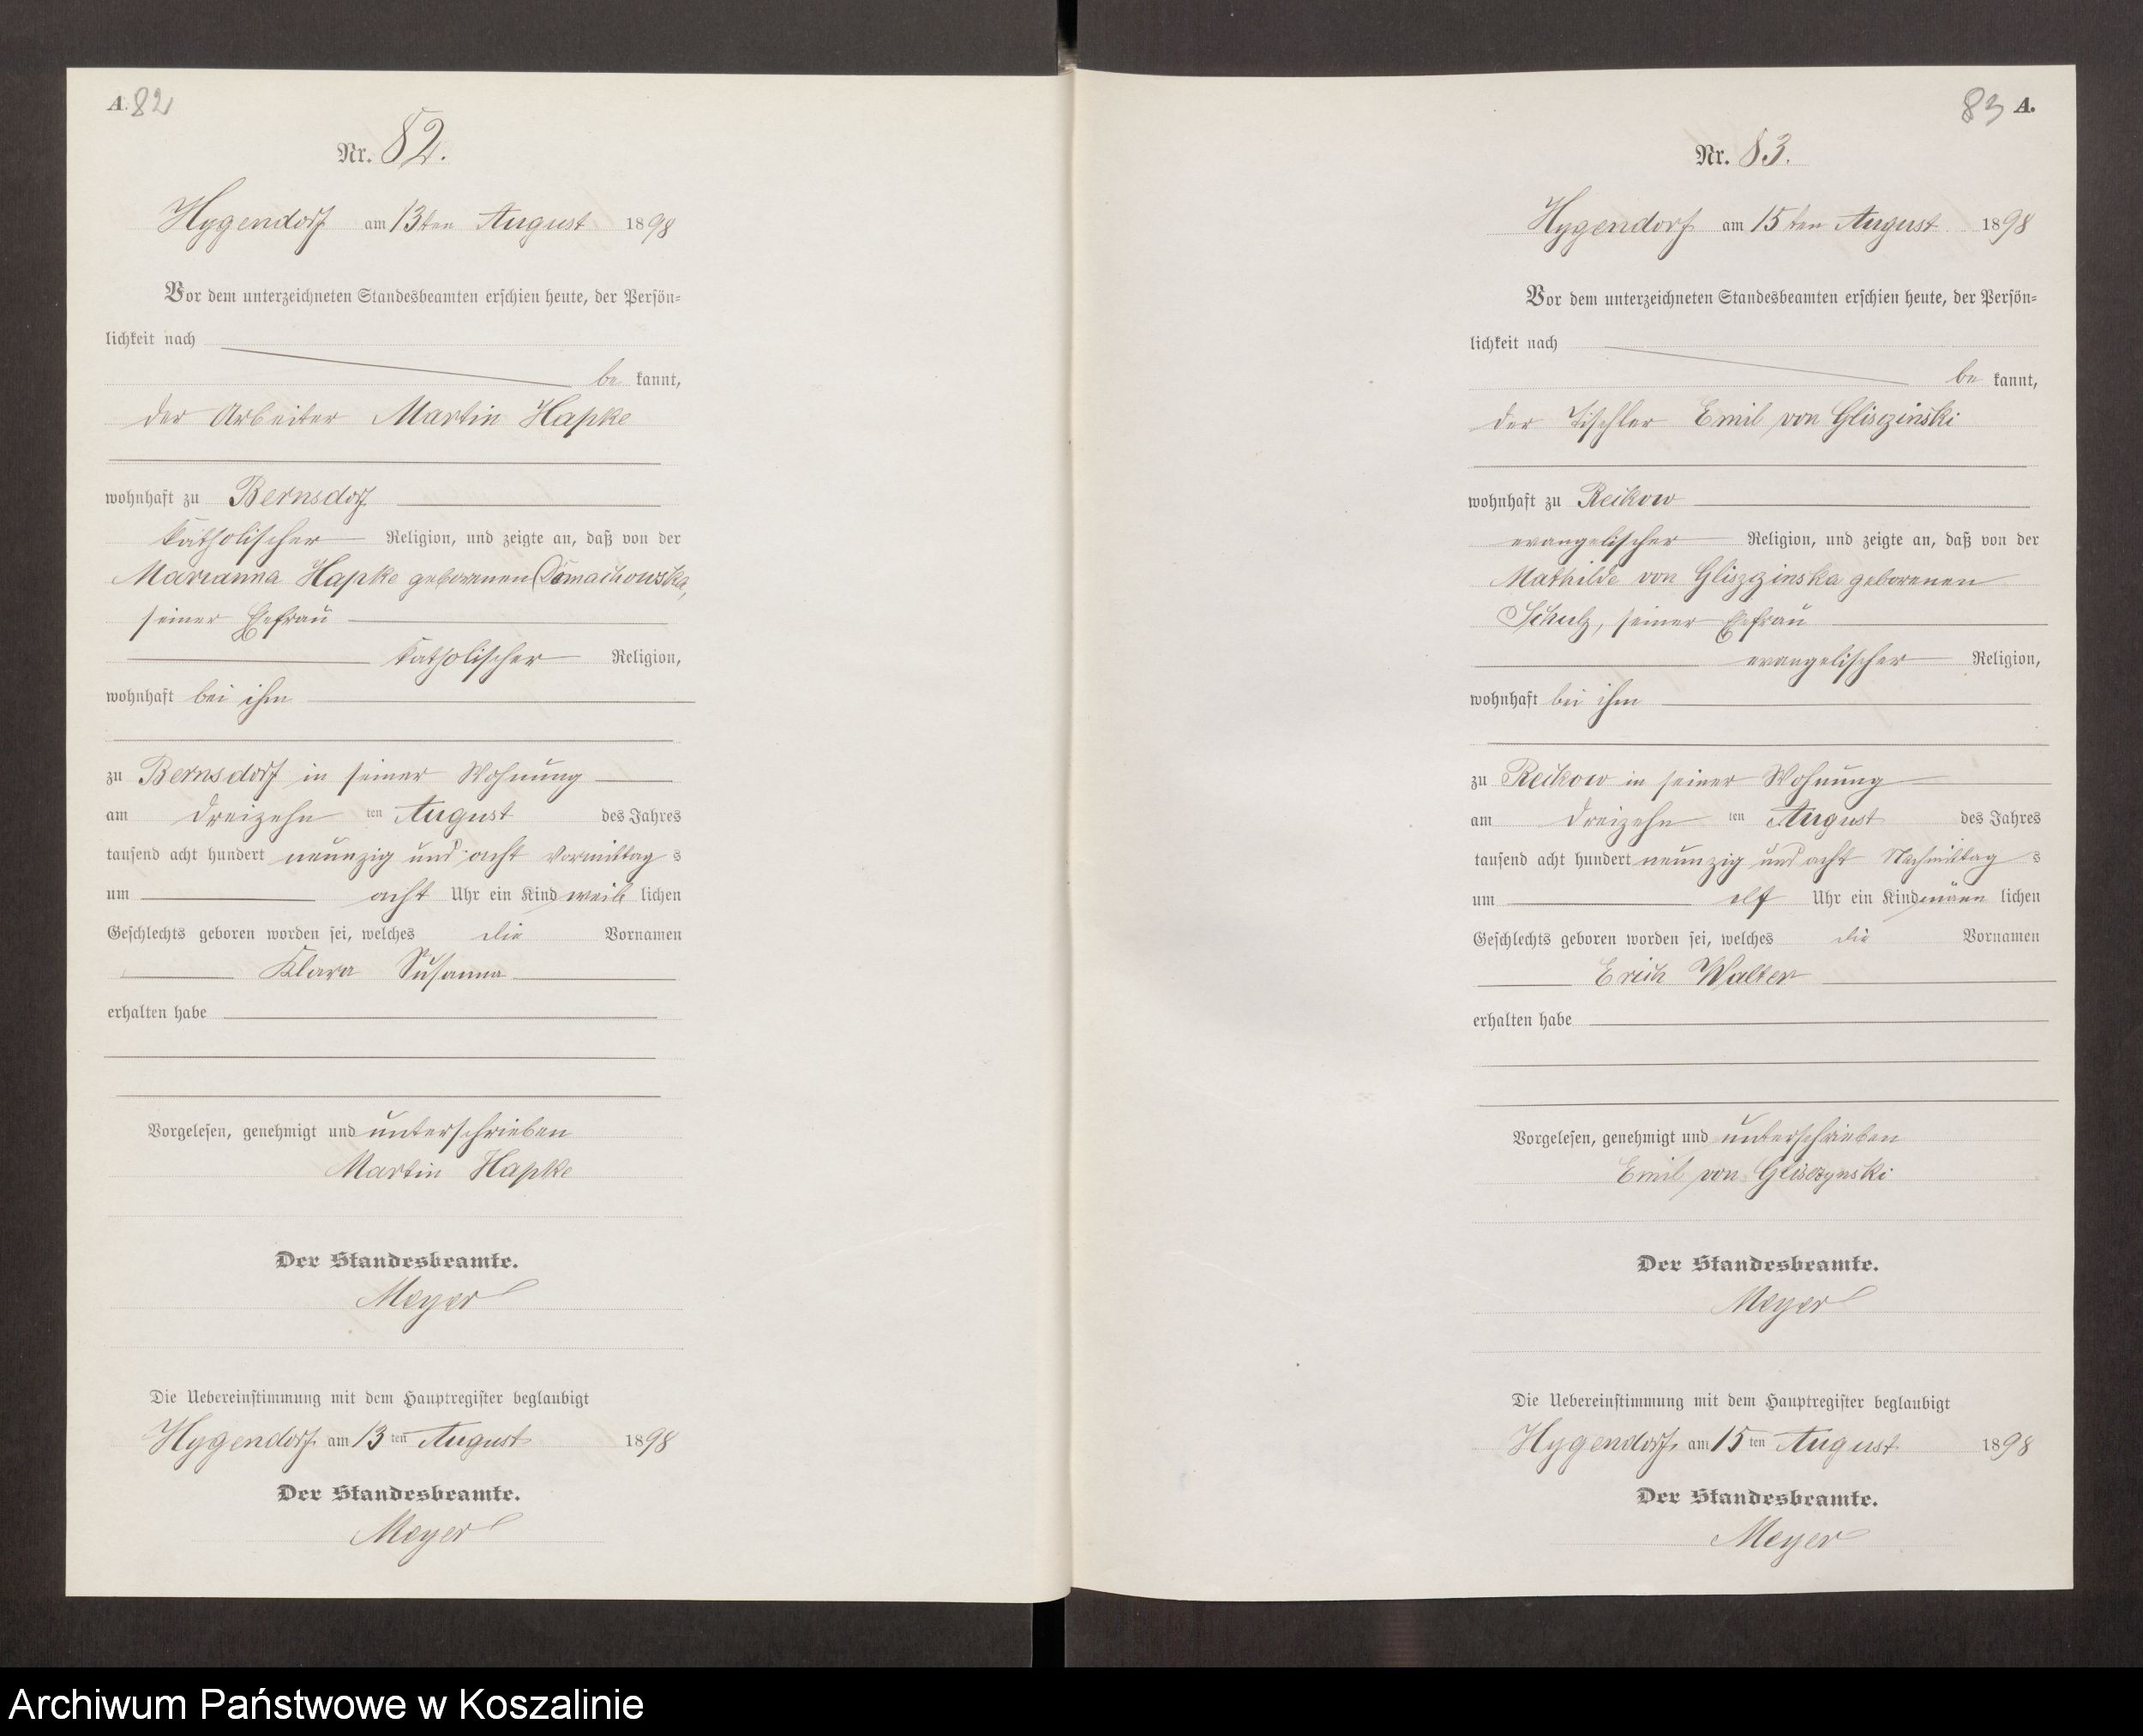 A. 82
Nr. 82.
Hygendorf am 13ten August 1898
Vor dem unterzeichneten Standesbeamten erschien heute, der Persön=
lichkeit nach
be kannt,
der Arbeiter Martin Hapke
wohnhaft zu Bernsdorf
katholischer Religion, und zeigte an, daß von der
Marianna Hapke geborenen Domachowska,
seiner Ehefrau
katholischer Religion,
wohnhaft bei ihm
zu Bernsdorf in seiner Wohnung
am dreizehn ten August des Jahres
tausend acht hundert neunzig und acht Vormittag s
um acht Uhr ein Kind weib lichen
Geschlechts geboren worden sei, welches die Vornamen
Klara Susanna
erhalten habe
Vorgelesen, genehmigt und unterschrieben
Martin Hapke
Der Standesbeamte.
Meyer
Die Uebereinstimmung mit dem Hauptregister beglaubigt
Hygendorf am 13 ten August 1898
Der Standesbeamte.
Meyer
83 A.
Nr. 83.
Hygendorf am 15ten August 1898
Vor dem unterzeichneten Standesbeamten erschien heute, der Persön=
lichkeit nach
be kannt,
der Tischler Emil von Glisczinski
wohnhaft zu Reckow
evangelischer Religion, und zeigte an, daß von der
Mathilde von Gliszczinska geborenen
Schulz, seiner Ehefrau
evangelischer Religion,
wohnhaft bei ihm
zu Reckow in seiner Wohnung
am dreizehn ten August des Jahres
tausend acht hundert neunzig und acht Nachmittag s
um elf Uhr ein Kind männ lichen
Geschlechts geboren worden sei, welches die Vornamen
Erich Walter
erhalten habe
Vorgelesen, genehmigt und unterschrieben
Emil von Glisczynski
Der Standesbeamte.
Meyer
Die Uebereinstimmung mit dem Hauptregister beglaubigt
Hygendorf am 15 ten August 1898
Der Standesbeamte.
Meyer
Archiwum Państwowe w Koszalinie